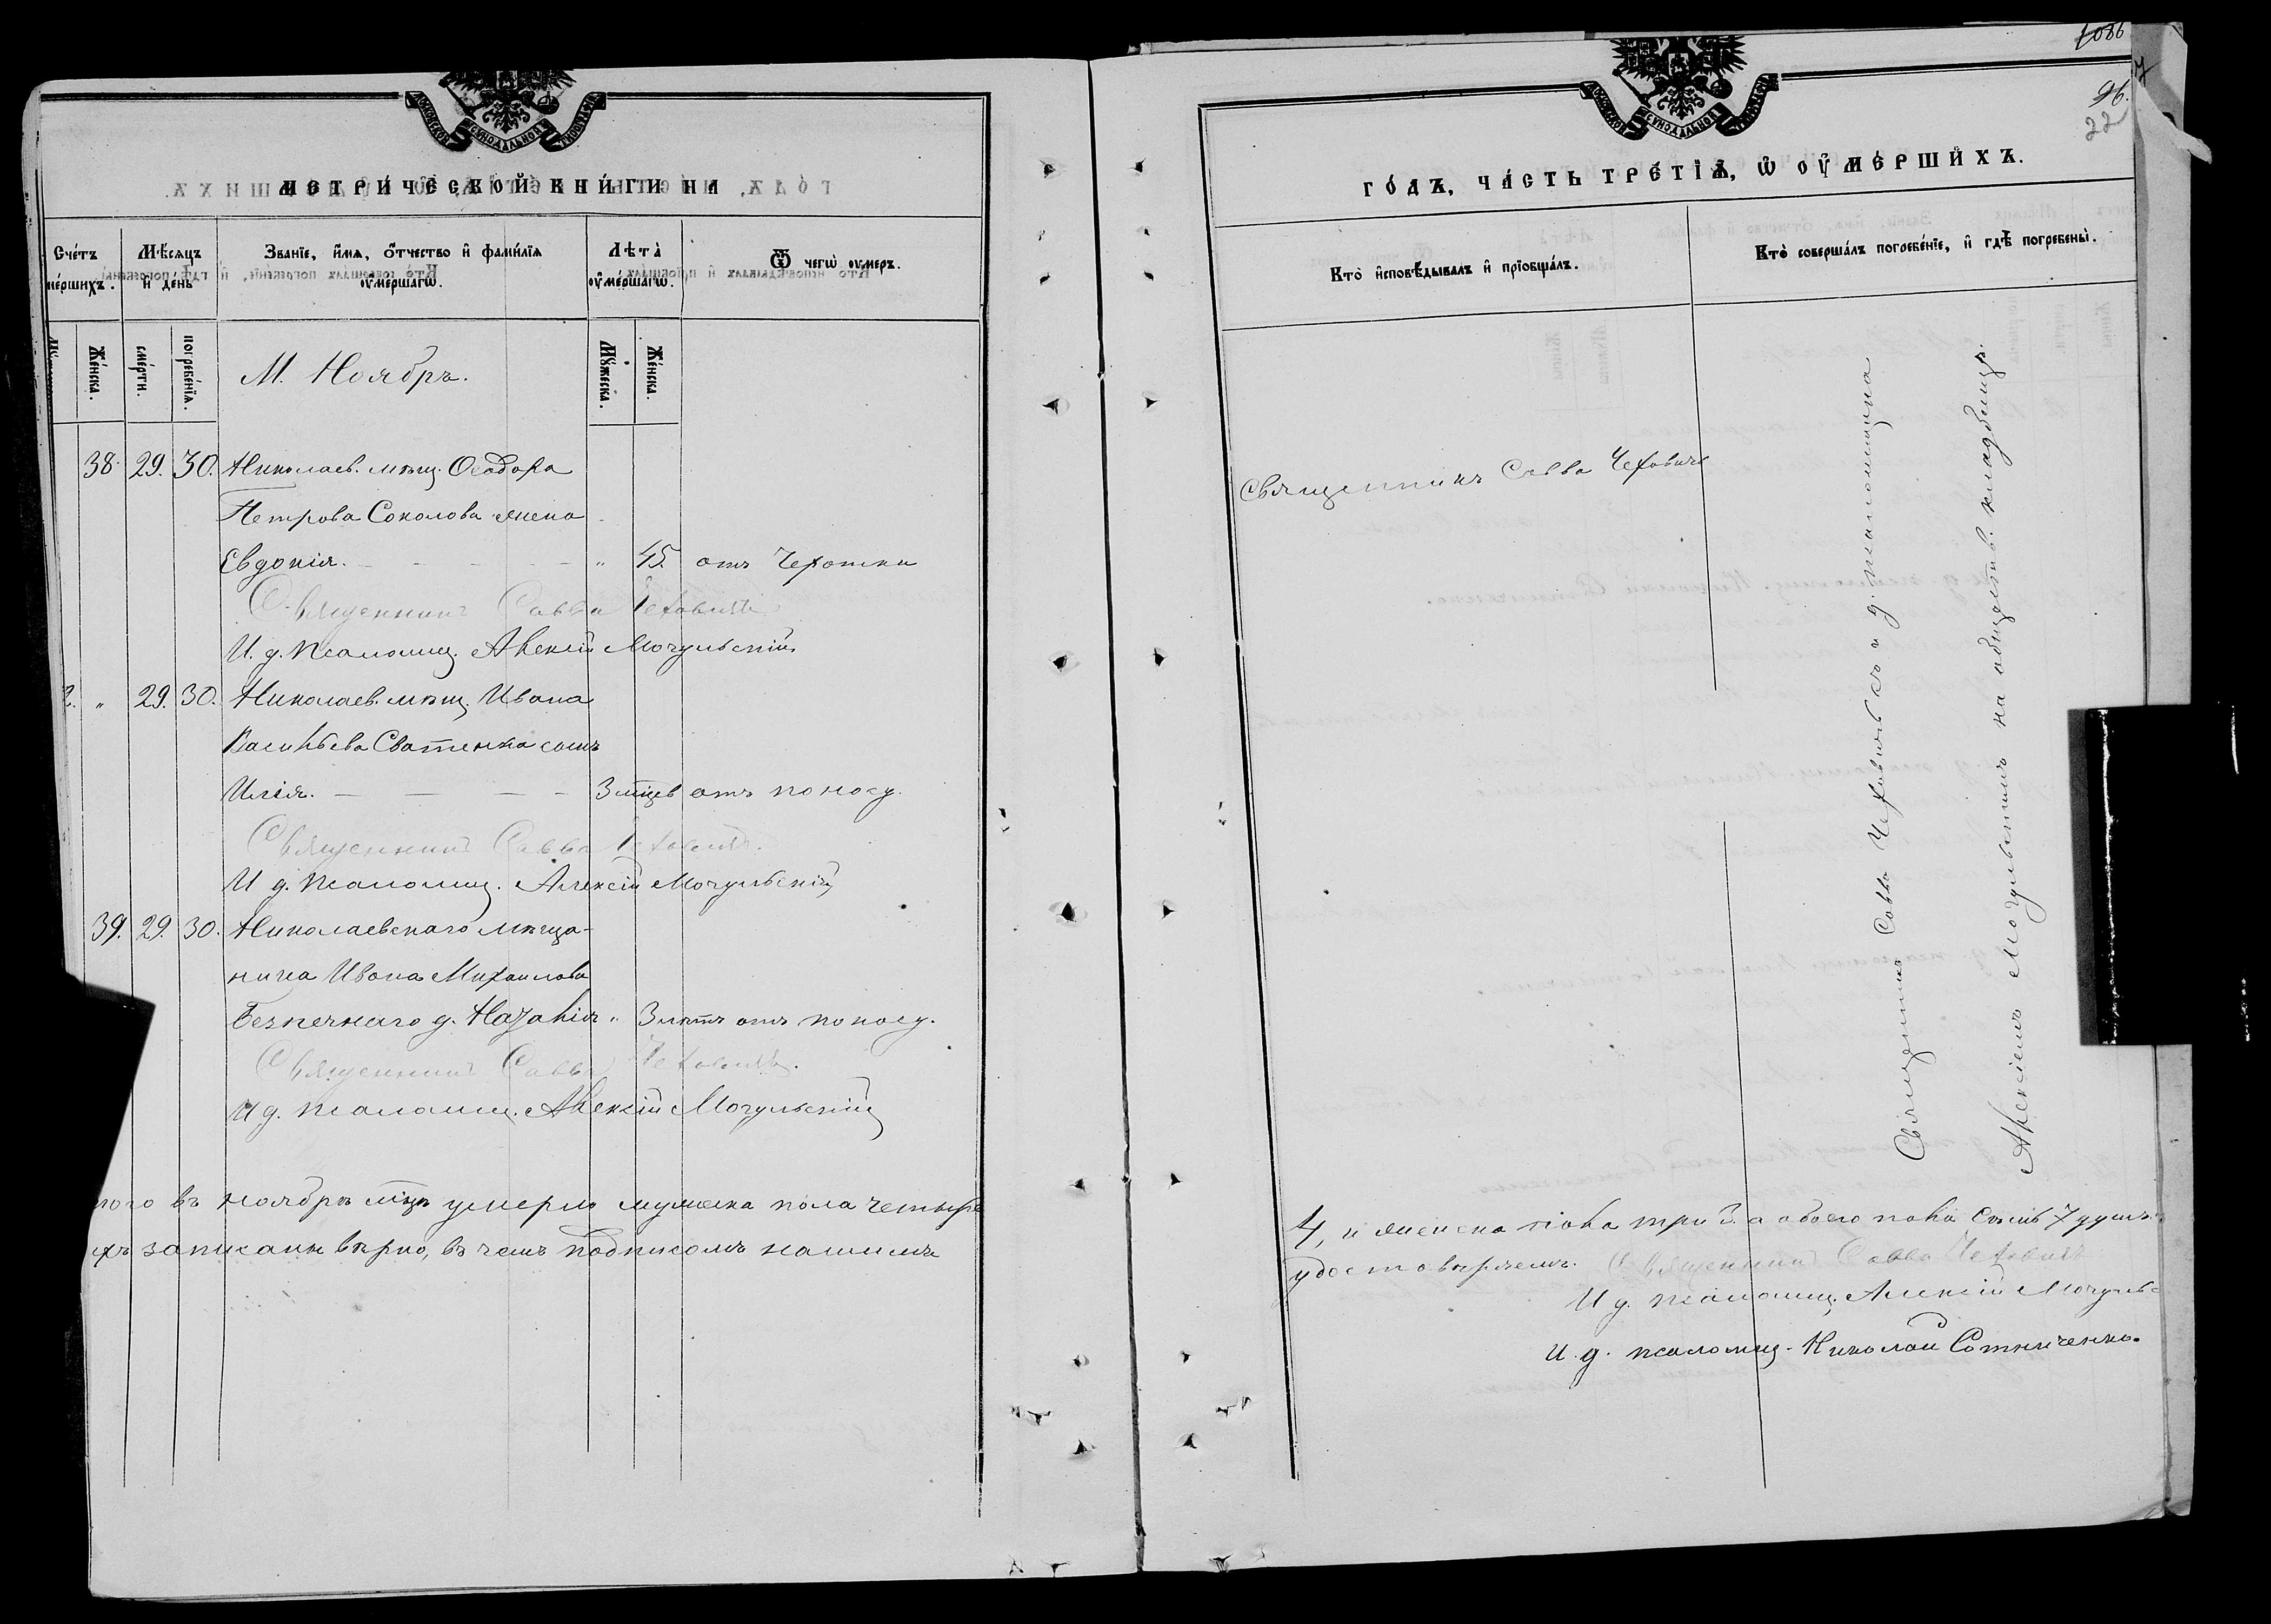 1086
26.
22
МОСКОВСКОЙ СѴНОДАЛЬНОЙ ТИПОГРАФІИ
МЕТРИ́ЧЕСКОЙ КНИ́ГИ НА
Сче́тъ ᲂу҆ме́ршихъ.
Мѣ́сѧцъ и҆ де́нь
Зва́нїе, и҆́мѧ, ѻ҆́тчество и҆ фамилїѧ ᲂу҆ме́ршагѡ.
Лѣ́та ᲂу҆ме́ршагѡ.
Ѿ чегѡ̀ ᲂу҆́меръ.
Же́нска.
сме́рти.
погребе́нїѧ.
Мꙋ́жеска.
Же́нска.
М. Ноябрь.
38. 29. 30. Николаев. мѣщ. Ѳеодора
Петрова Соколова жена
Евдокія. — — — — — „ 45. отъ Чехотки
Священникъ Савва Чеховичъ
И. д. псаломщ. Алексій Мочульскій
2. „ 29. 30. Николаев. мѣщ. Ивана
Васильева Сватенка сынъ
Илія. — — — — 3 мѣсцев отъ поносу.
Священникъ Савва Чеховичъ.
И д. псаломщ. Алексій Мочульскій
39. 29. 30. Николаевскаго мѣща-
нина Ивана Михаилова
Безпечнаго д. Назарія „ 3 лѣтъ отъ поносу.
Священникъ Савва Чеховичъ.
И д. псаломщ. Алексій Мочульскій
того въ ноябрѣ мцѣ умерло мужеска пола четыре
ихъ записано вѣрно, въ чемъ подписомъ нашимъ
МОСКОВСКОЙ СѴНОДАЛЬНОЙ ТИПОГРАФІИ
ГО́ДЪ, ЧА́СТЬ ТРЕ́ТІѦ, Ѡ ОУ҆МЕ́РШИХЪ.
Кто̀ и҆сповѣ́дывалъ и҆ прїобща́лъ.
Кто̀ соверша́лъ погребе́нїе, и҆ гдѣ̀ погребены̀.
Священникъ Савва Чеховичъ
Священникъ Савва Чеховичъ съ и д. псаломщика
Алексіемъ Мочульскимъ на обществ. кладбищѣ.
4, и женска пола три 3. а обоего пола семь 7 душъ.
удостовѣряемъ. Священникъ Савва Чеховичъ
И д. псаломщ. Алексій Мочульс
И. д. псаломщ. Николай Сотниченко.